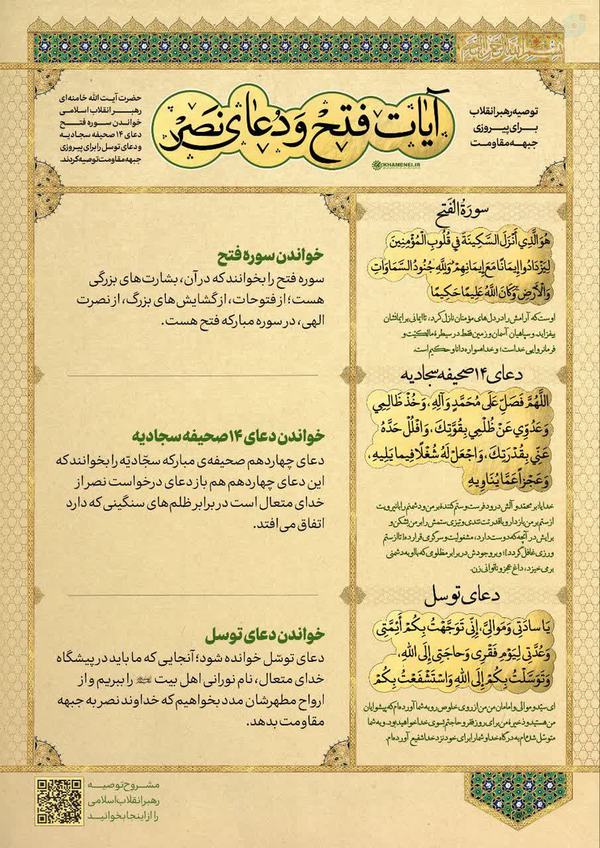 توصیه رهبر انقلاب
برای پیروزی
جبهه مقاومت
آیات فتح و دعای نصر
KHAMENEI.IR
حضرت آیت الله خامنه‌ای
رهبر انقلاب اسلامی
خواندن سوره فتح
دعای ۱۴ صحیفه سجادیه
و دعای توسل را برای پیروزی
جبهه مقاومت توصیه کردند.
سورة الفتح
هُوَ الَّذِي أَنْزَلَ السَّكِينَةَ فِي قُلُوبِ الْمُؤْمِنِينَ
لِيَزْدَادُوا إِيمَانًا مَعَ إِيمَانِهِمْ وَلِلَّهِ جُنُودُ السَّمَاوَاتِ
وَالْأَرْضِ وَكَانَ اللَّهُ عَلِيمًا حَكِيمًا
اوست که آرامش را در دل‌های مؤمنان نازل کرد، تا ایمانی بر ایمانشان
بیفزاید. و سپاهیان آسمان و زمین فقط در سیطرهٔ مالکیّت و
فرمانروایی خداست؛ و خدا همواره دانا و حکیم است.
خواندن سوره فتح
سوره فتح را بخوانند که در آن، بشارت‌های بزرگی
هست؛ از فتوحات، از گشایش‌های بزرگ، از نصرت
الهی، در سوره مبارکه فتح هست.
دعای ۱۴ صحیفه سجادیه
اللَّهُمَّ فَصَلِّ عَلَى مُحَمَّدٍ وَآلِهِ، وَخُذْ ظَالِمِي
وَعَدُوِّي عَنْ ظُلْمِي بِقُوَّتِكَ، وَافْلُلْ حَدَّهُ
عَنِّي بِقُدْرَتِكَ، وَاجْعَلْ لَهُ شُغْلًا فِيمَا يَلِيهِ،
وَعَجْزاً عَمَّا يُنَاوِيهِ
خدایا، بر محمّد و آلش درود فرست و ستم کننده بر من و دشمنم را با نیرویت
از ستم بر من بازدار و با قدرتت تندی و تیزی ستمش را بر من بشکن و
برایش در آنچه که دوست دارد، مشغولیت و سرگرمی قرار ده
ورزی غافل گردد)؛ و بر وجودش در برابر مظلومی که با او به دشمنی
برمی‌خیزد، داغ عجز و ناتوانی زن.
خواندن دعای ۱۴ صحیفه سجادیه
دعای چهاردهم صحیفه‌ی مبارکه سجّادیّه را بخوانند که
این دعای چهاردهم هم باز دعای درخواست نصر از
خدای متعال است در برابر ظلم‌های سنگینی که دارد
اتفاق می‌افتد.
دعای توسل
يَا سَادَتِي وَمَوَالِيَّ، إِنِّي تَوَجَّهْتُ بِكُمْ أَئِمَّتِي
وَعُدَّتِي لِيَوْمِ فَقْرِي وَحَاجَتِي إِلَى اللَّهِ،
وَتَوَسَّلْتُ بِكُمْ إِلَى اللَّهِ وَاسْتَشْفَعْتُ بِكُمْ
ای سیّد و موالی و امامان من من از روی خلوص رو به شما آورده‌ام که پیشوایان
من هستید و ذخیره من برای روز فقر و حاجتم سوی خدا خواهید بود و به شما
متوسّل شده‌ام به درگاه خدا و شما را برای خود نزد خدا شفیع آورده‌ام.
خواندن دعای توسل
دعای توسّل خوانده شود؛ آنجایی که ما باید در پیشگاه
خدای متعال، نام نورانی اهل بیت را ببریم و از
ارواح مطهرشان مدد بخواهیم که خداوند نصر به جبهه
مقاومت بدهد.
مشروح توصیه
رهبر انقلاب اسلامی
را از اینجا بخوانید